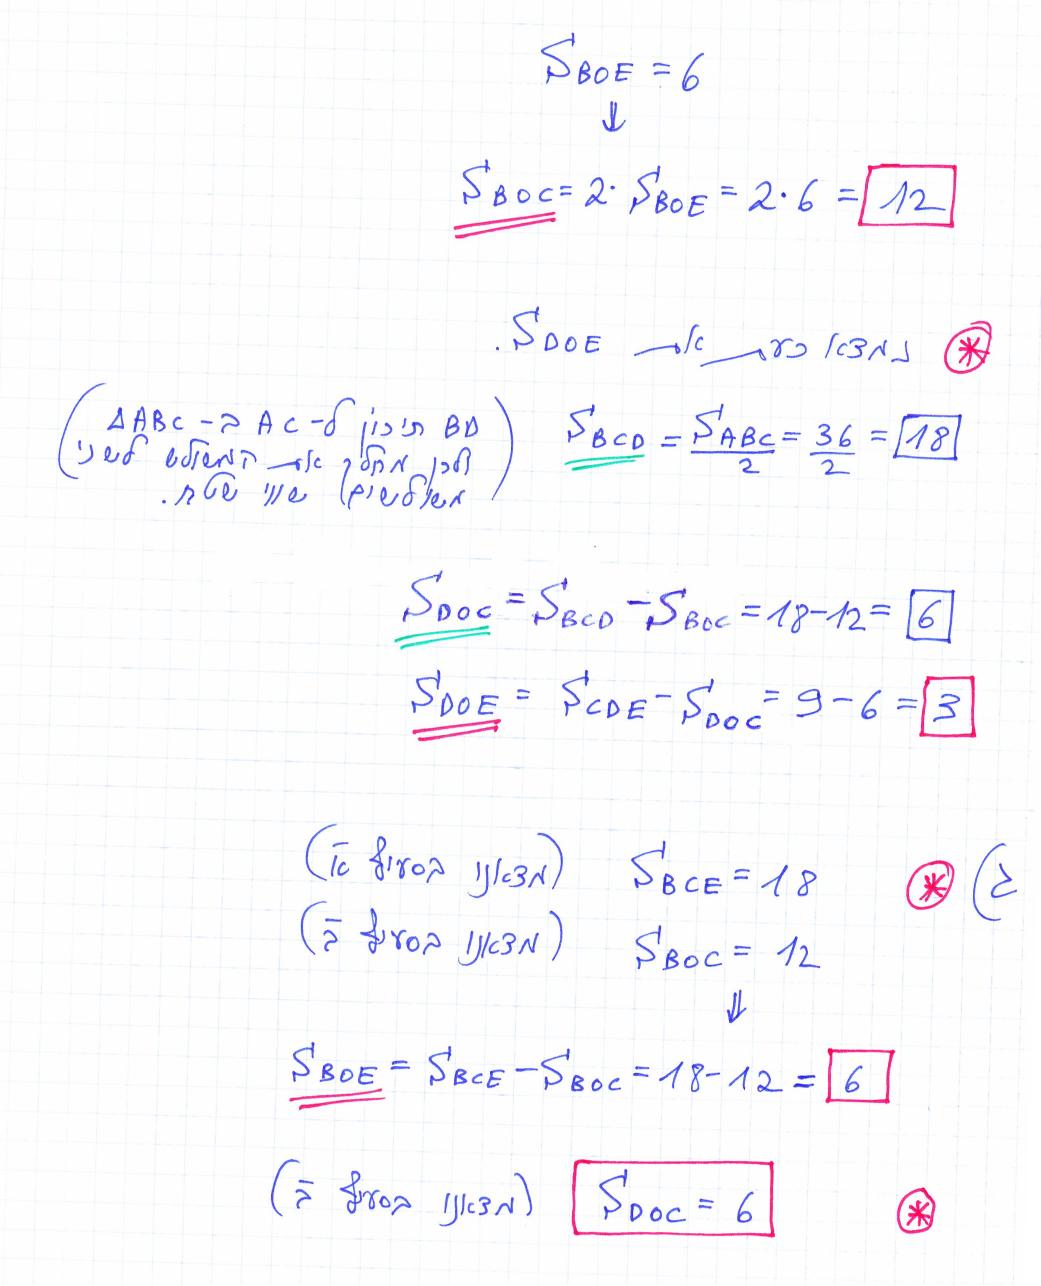 S_BOE = 6
⇓
S_BOC = 2 · S_BOE = 2 · 6 = 12
* נמצא כעת את S_DOE.
S_BCD = S_ABC/2 = 36/2 = 18
(BD תיכון ל- AC ב- ΔABC
ולכן מחלק את המשולש לשני
משולשים שווי שטח.)
S_DOC = S_BCD - S_BOC = 18 - 12 = 6
S_DOE = S_CDE - S_DOC = 9 - 6 = 3
ג) * S_BCE = 18 (מצאנו בסעיף א)
S_BOC = 12 (מצאנו בסעיף ב)
⇓
S_BOE = S_BCE - S_BOC = 18 - 12 = 6
* S_DOC = 6 (מצאנו בסעיף ב)